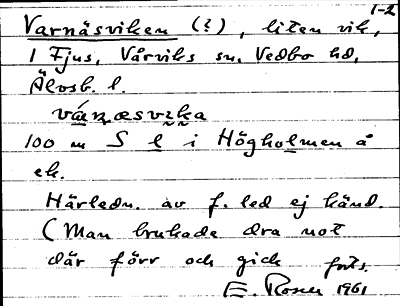 1-2
Varnäsviken (?), liten vik,
1 Fjus, Vårviks sn, Vedbo hd,
Älvsb. l.
vá̱ṉæsvɩka
100 m S l i Högholmen å
ek.
Härledn. av f. led ej känd.
(Man brukade dra not
där förr och gick forts.
E. Rosen 1961